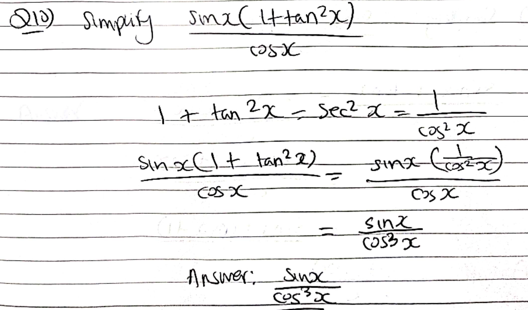 Q10) Simplify sinx(1+tan²x)/cosx
1 + tan²x = sec²x = 1/cos²x
sinx(1 + tan²x)/cosx = sinx(1/cos²x)/cosx
= sinx/cos³x
Answer: sinx/cos³x